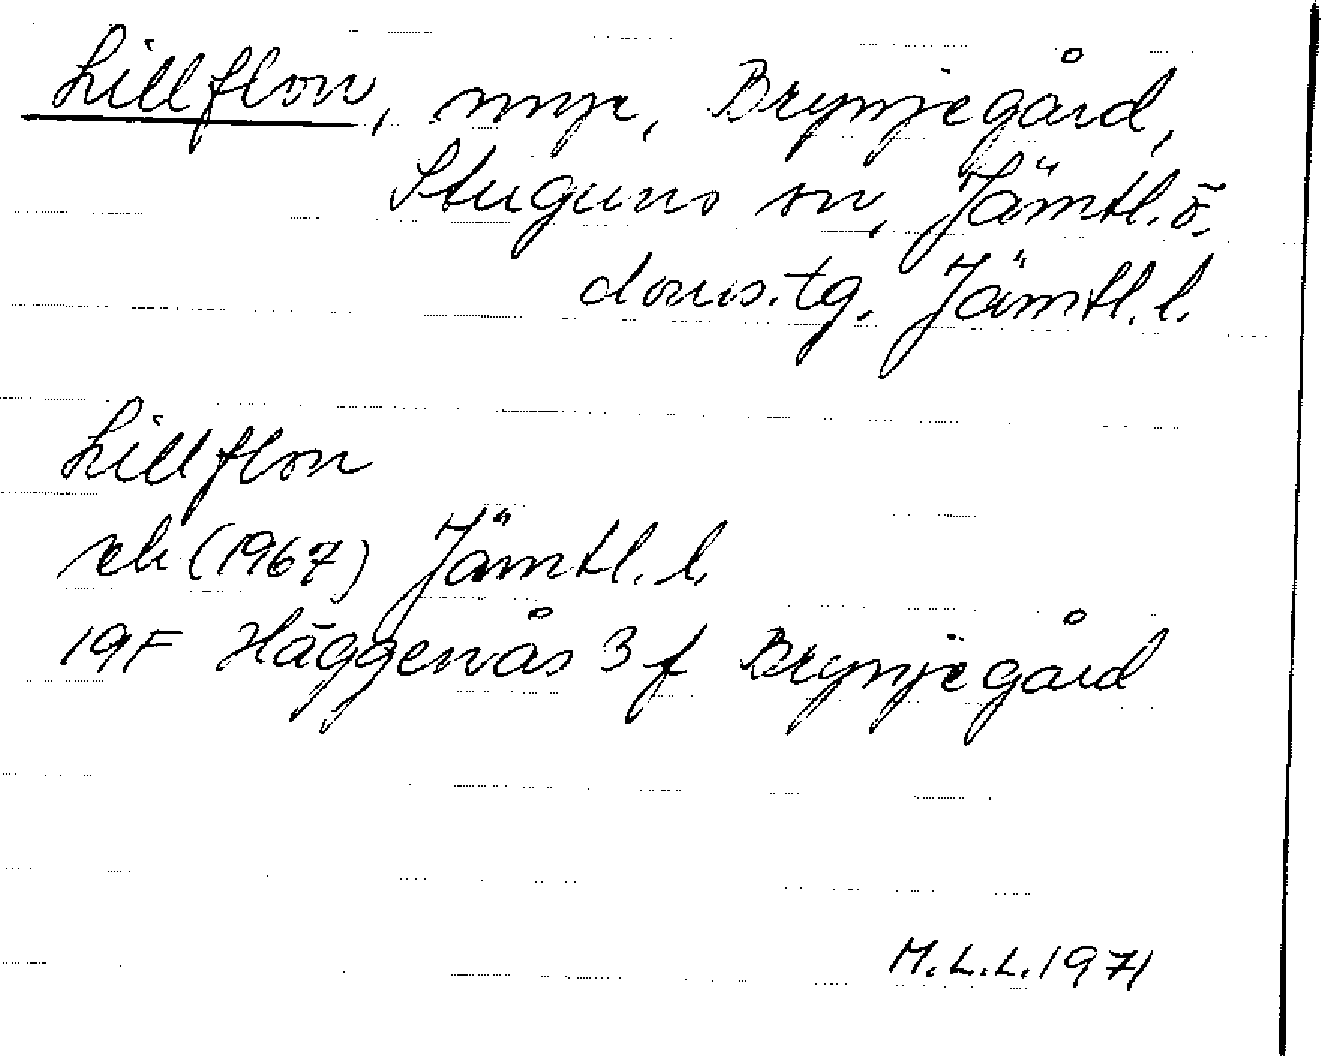 Lillflon, myr, Brynjegård,
Stuguns sn, Jämtl. ö.
doms.tg. Jämtl. l.
Lillflon
rek (1967) Jämtl. l.
19F Häggenås 3 f Brynjegård
M.L.L. 1971